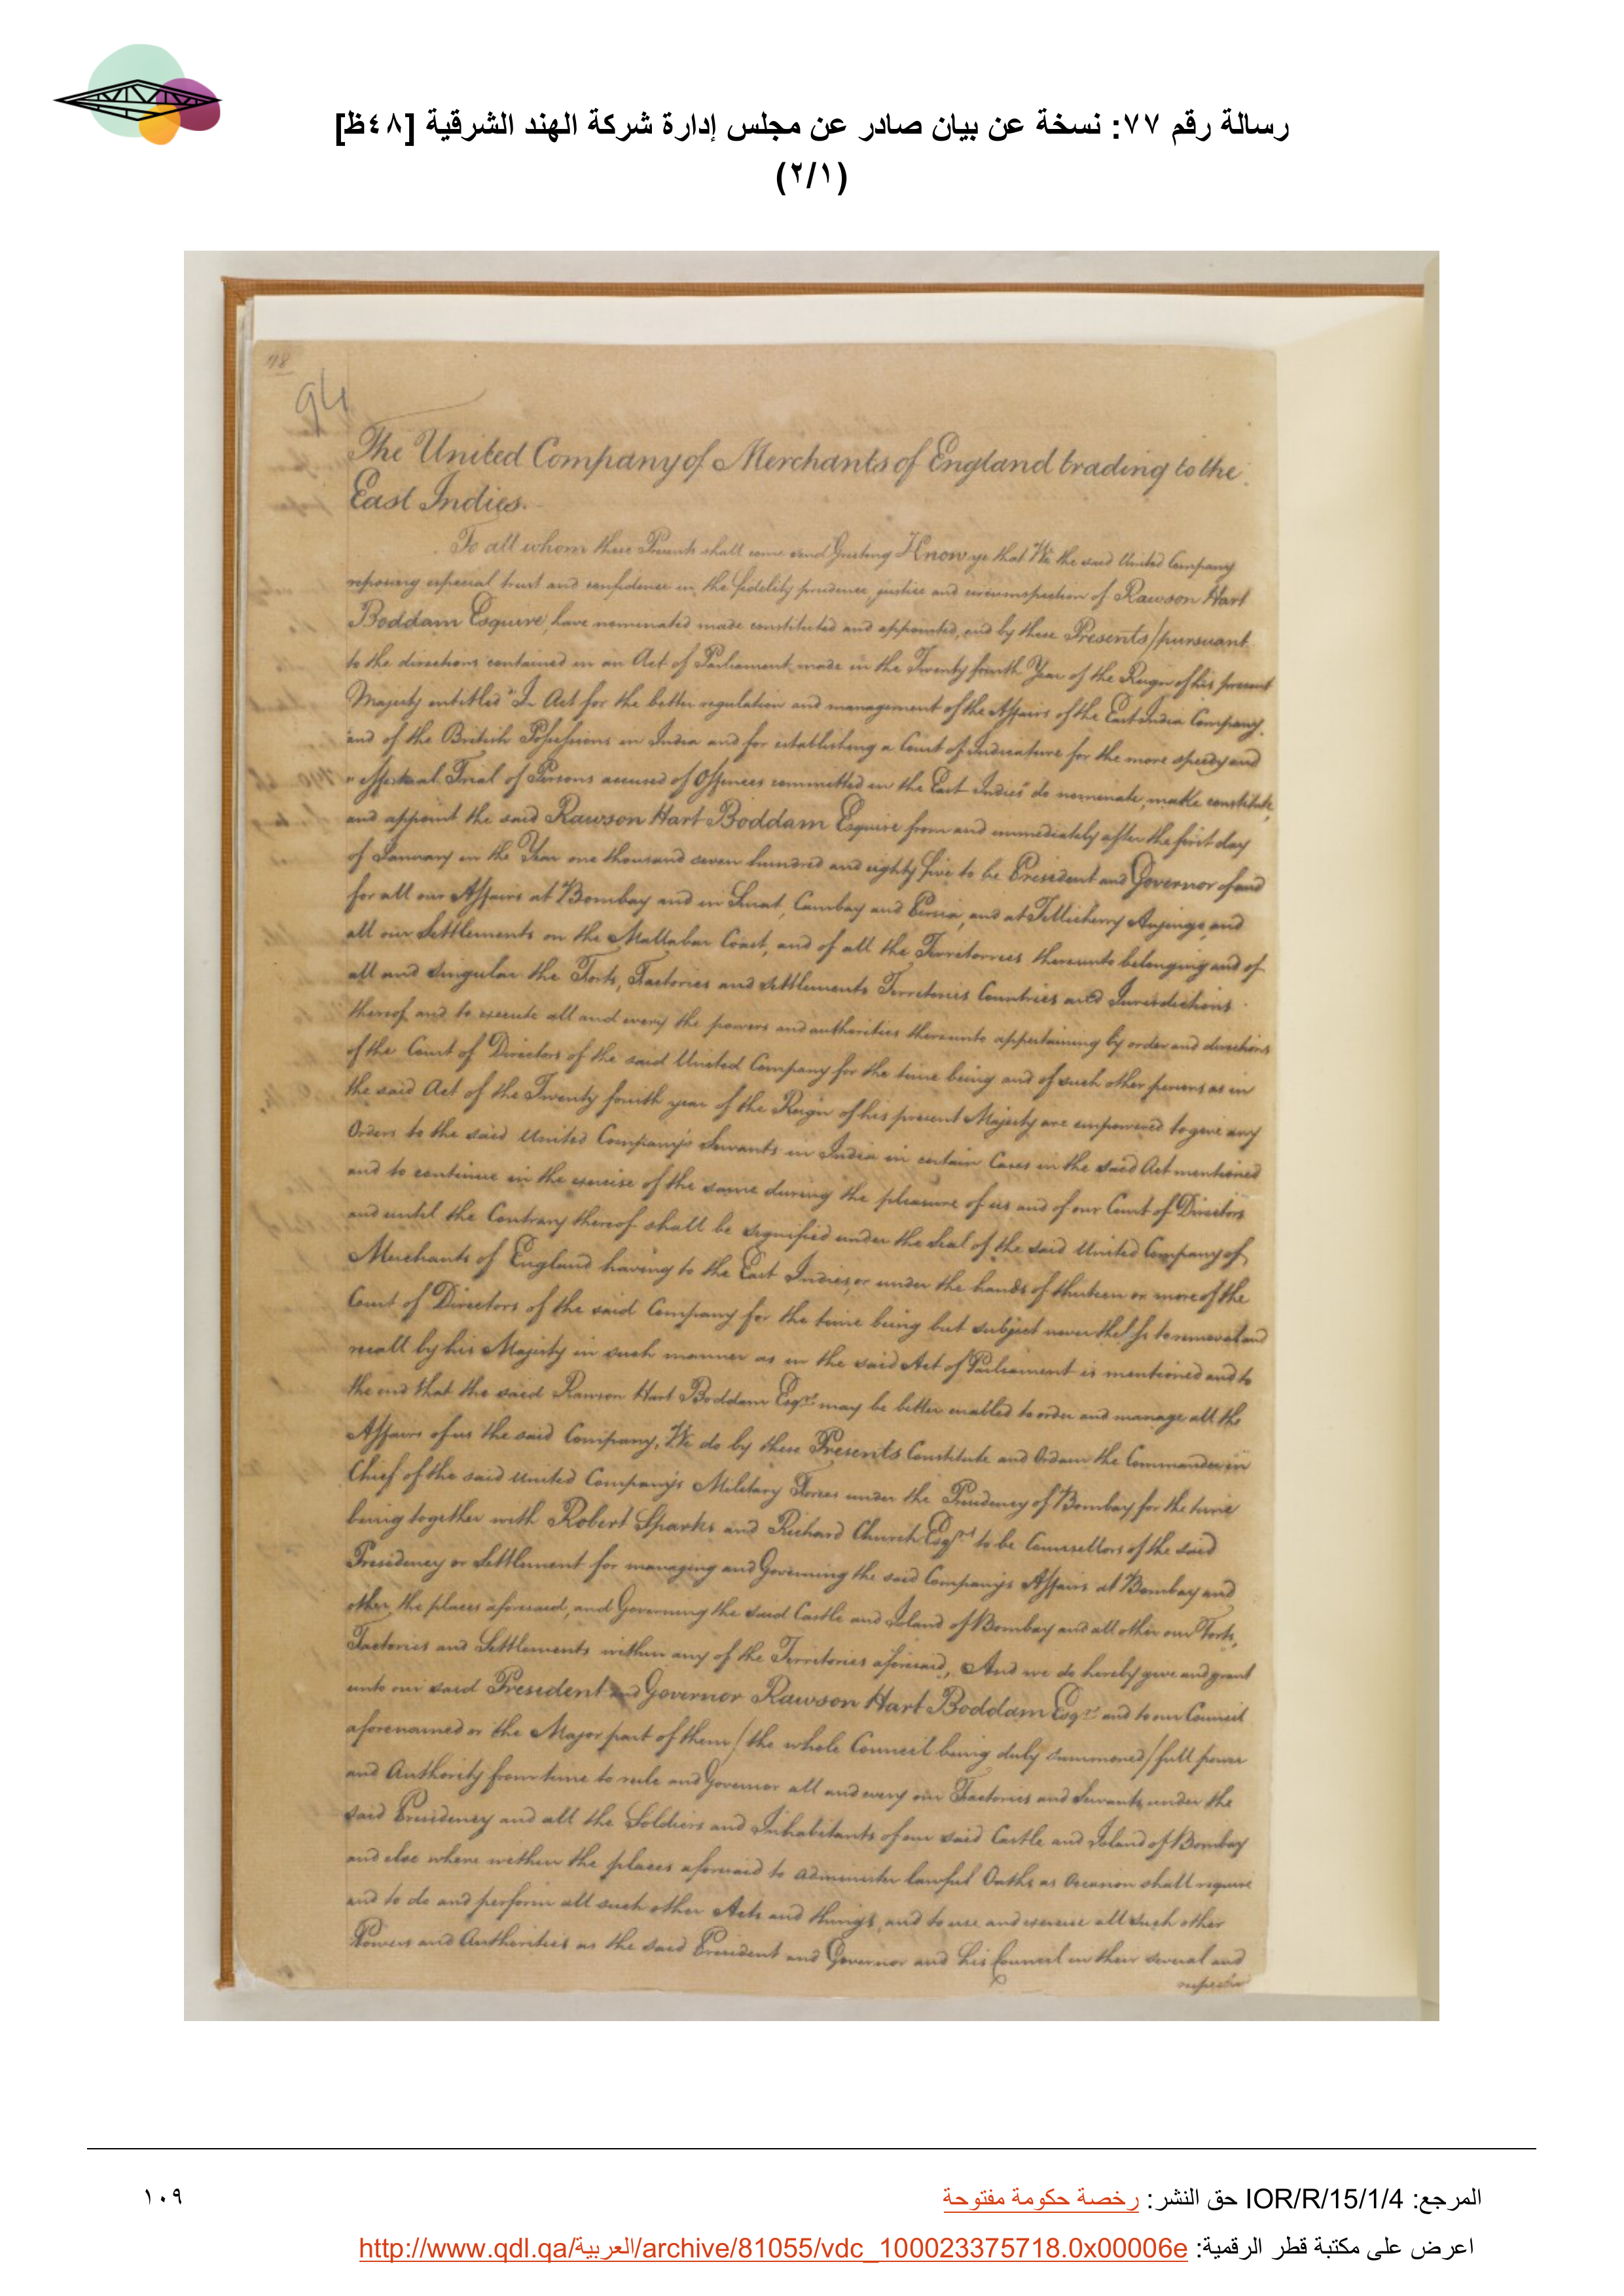 رسالة رقم ٧٧: نسخة عن بيان صادر عن مجلس إدارة شركة الهند الشرقية [٤٨ظ]
(٢/١)
48
94
The United Company of Merchants of England trading to the
East Indies.
To all whom these Presents shall come send Greeting Know ye that We the said United Company
reposing especial trust and confidence in the fidelity prudence, justice and circumspection of Rawson Hart
Boddam Esquire, have nominated made constituted and appointed, and by these Presents/pursuant
to the directions contained in an Act of Parliament made in the Twenty fourth Year of the Reign of his present
Majesty entitled "In Act for the better regulation and management of the Affairs of the East India Company,
and of the British Possessions in India and for establishing a Court of Judicature for the more speedy and
" effectual Trial of Persons accused of Offences committed in the East Indies" do nominate, make constitute,
and appoint the said Rawson Hart Boddam Esquire from and immediately after the first day
of January in the Year one thousand seven hundred and eighty five to be President and Governor of and
for all our Affairs at Bombay and in Surat, Cambay and Persia, and at Tellicherry Anjengo, and
all our Settlements on the Mallabar Coast, and of all the Territorries thereunto belonging and of
all and singular the Forts, Factories and Settlements Territories Countries and Jurisdictions
thereof and to execute all and every the powers and authorities thereunto appertaining by order and directions
of the Court of Directors of the said United Company for the time being and of such other persons as in
the said Act of the Twenty fourth year of the Reign of his present Majesty are empowered to give any
Orders to the said United Company's Servants in India in certain Cases in the said Act mentioned
and to continue in the exercise of the same during the pleasure of us and of our Court of Directors
and until the Contrary thereof shall be signified under the Seal of the said United Company of
Merchants of England having to the East Indies, or under the hands of thirteen or more of the
Court of Directors of the said Company for the time being but subject nevertheless to removal and
recall by his Majesty in such manner as in the said Act of Parliament is mentioned and to
the end that the said Rawson Hart Boddam Esqre may be better enabled to order and manage all the
Affairs of us the said Company, We do by these Presents Constitute and Ordain the Commander in
Chief of the said United Company's Military Forces under the Presidency of Bombay for the time
being together with Robert Sparks and Richard Church Esqrs to be Counsellors of the said
Presidency or Settlement for managing and Governing the said Company's Affairs at Bombay and
other the places aforesaid, and Governing the said Castle and Island of Bombay and all other our Forts,
Factories and Settlements within any of the Territories aforesaid, And we do hereby give and grant
unto our said President and Governor Rawson Hart Boddam Esqre and to our Council
aforenamed or the Major part of them / the whole Council being duly summoned / full power
and Authority from time to rule and Governor all and every our Factories and Servants under the
said Presidency and all the Soldiers and Inhabitants of our said Castle and Island of Bombay
and else where within the places aforesaid to administer lawful Oaths as Occasion shall require
and to do and perform all such other Acts and things, and to use and exercise all such other
Powers and Authorities as the said President and Governor and his Council in their several and
المرجع: IOR/R/15/1/4 حق النشر: رخصة حكومة مفتوحة
١٠٩
اعرض على مكتبة قطر الرقمية: http://www.qdl.qa/العربية/archive/81055/vdc_100023375718.0x00006e